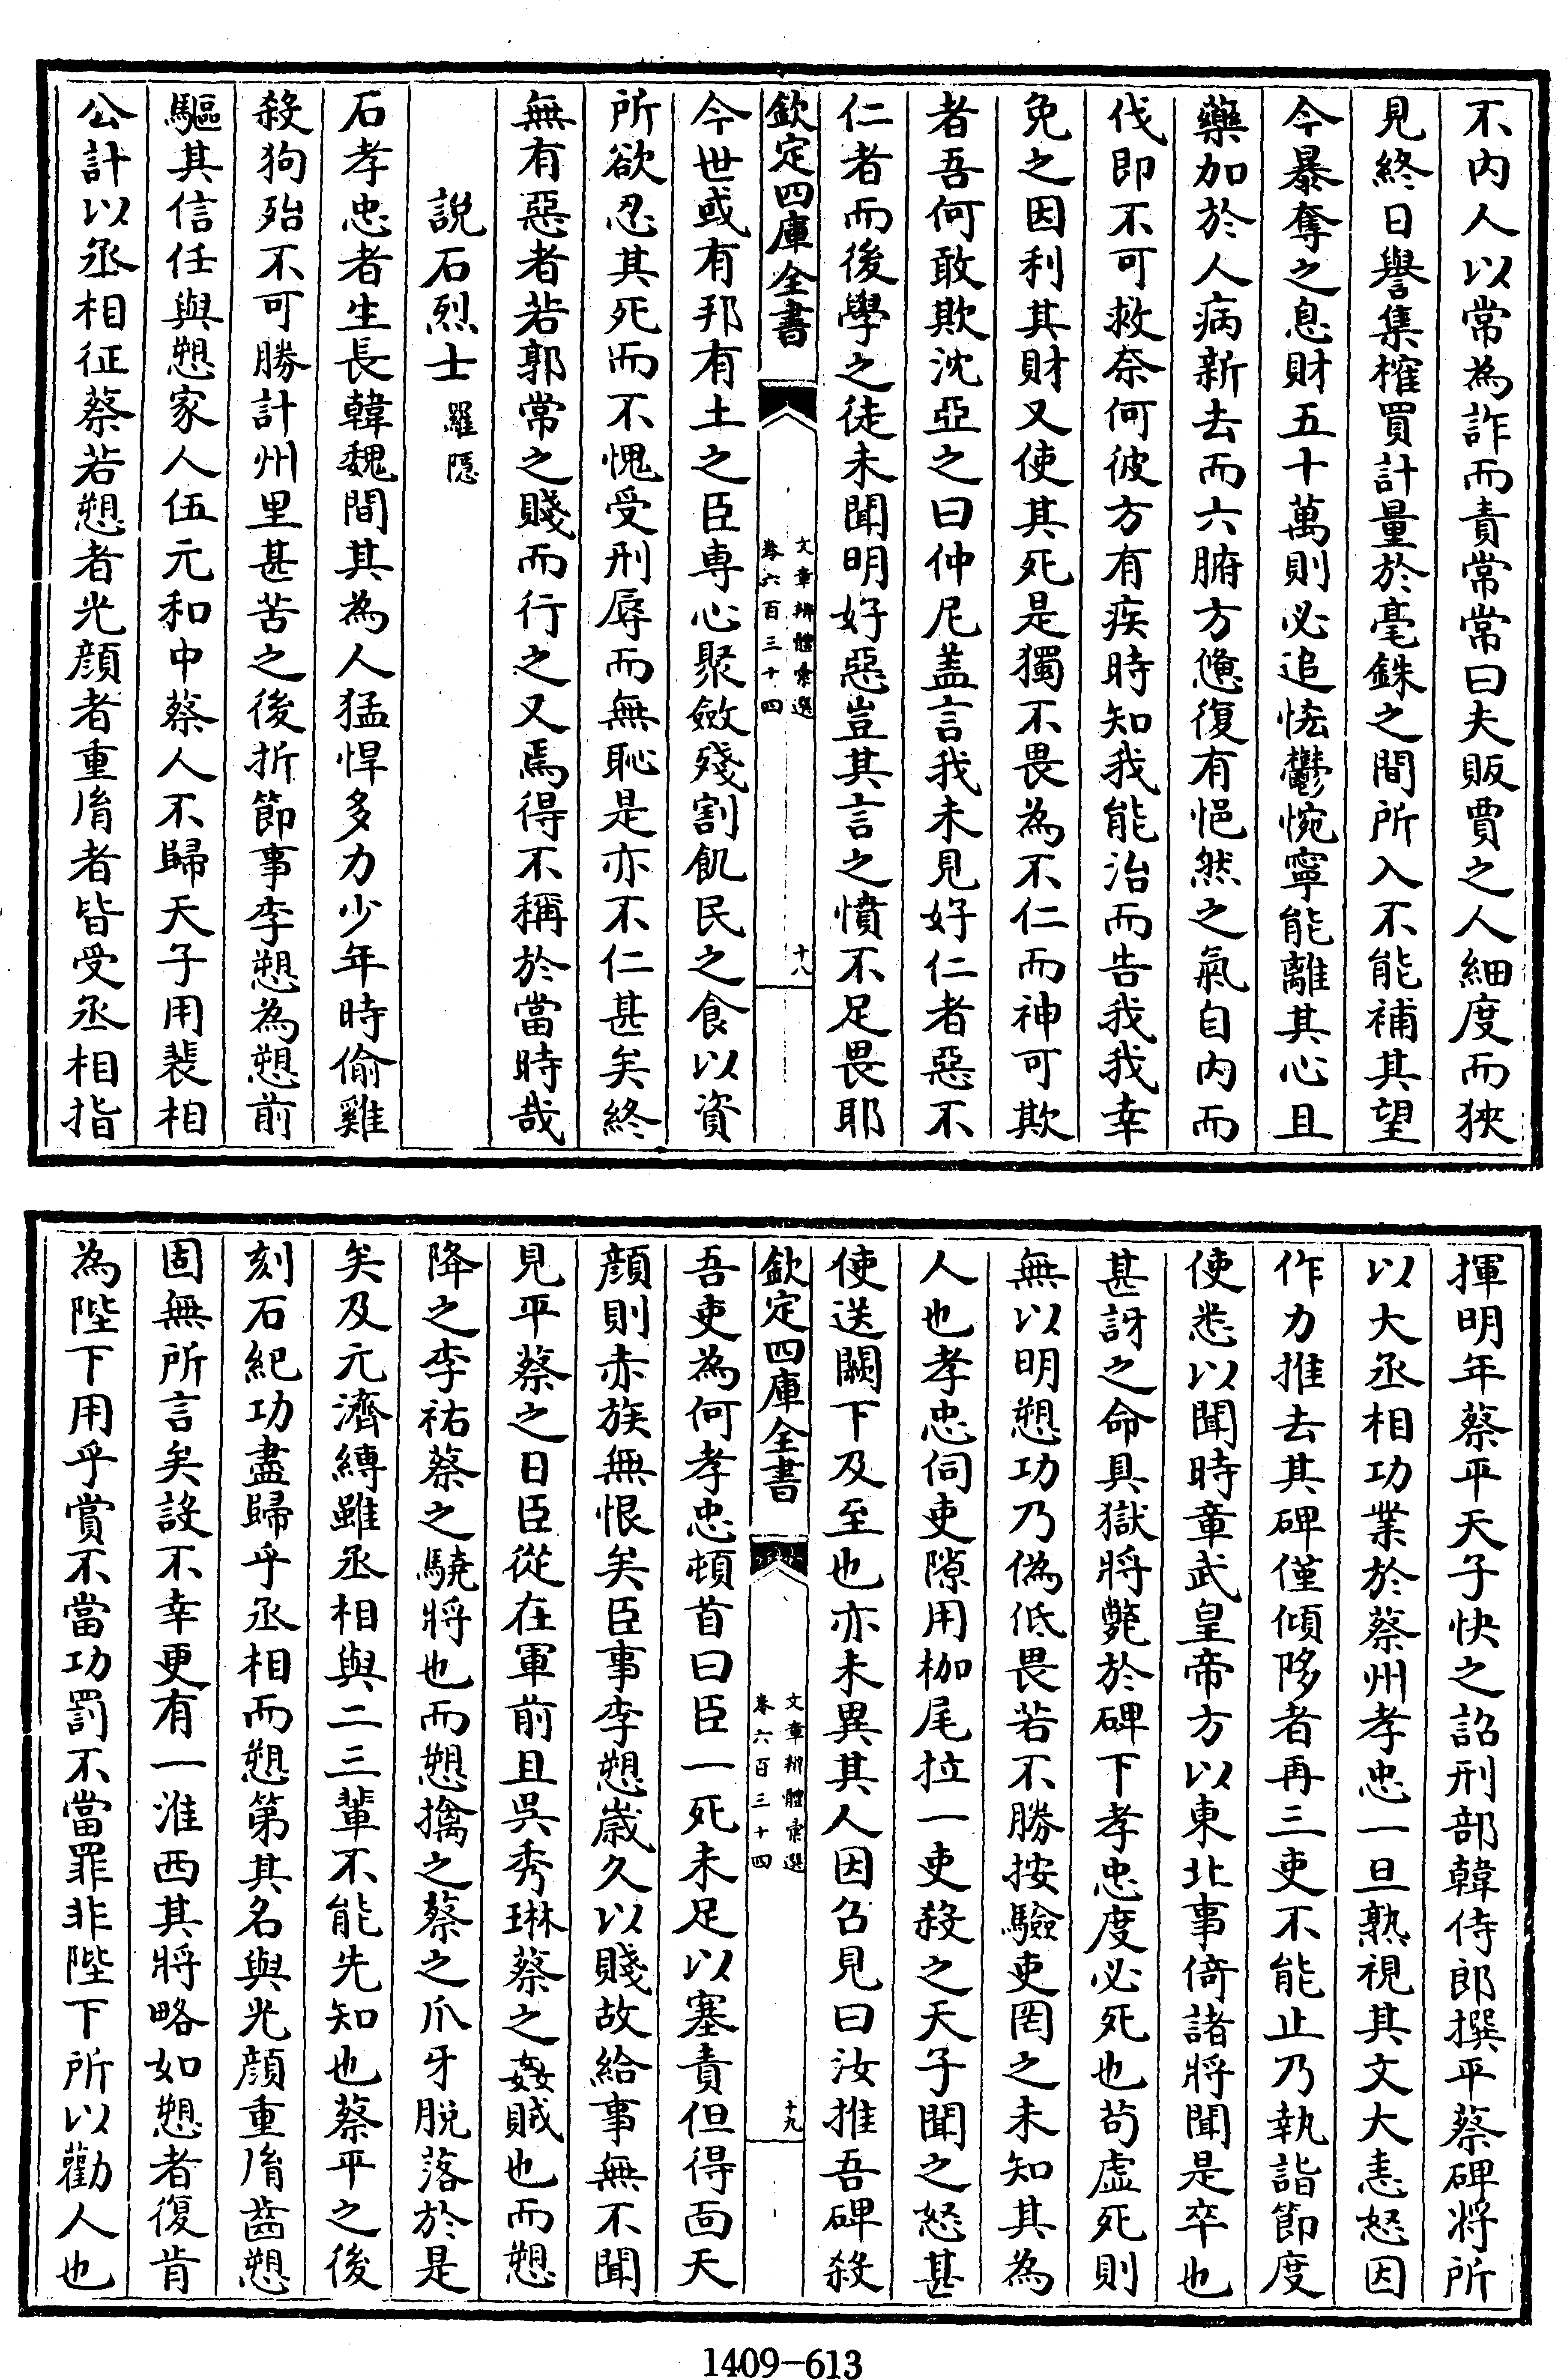 不内人以常為詐而責常常曰夫販賈之人細度而狹
見終日譽集榷買計量於毫銖之間所入不能補其望
今暴奪之息財五十萬則必追恡鬱惋寧能離其心且
藥加於人病新去而六腑方憊復有悒然之氣自内而
伐即不可救奈何彼方有疾時知我能治而告我我幸
免之因利其財又使其死是獨不畏為不仁而神可欺
者吾何敢欺沈亞之曰仲尼盖言我未見好仁者惡不
仁者而後學之徒未聞明好惡豈其言之憤不足畏耶
欽定四庫全書
文章辨體彙選
卷六百三十四
十八
今世或有邦有土之臣専心聚斂殘割飢民之食以資
所欲忍其死而不愧受刑辱而無恥是亦不仁甚矣終
無有惡者若郭常之賤而行之又焉得不稱於當時哉
說石烈士 羅隱
石孝忠者生長韓魏間其為人猛悍多力少年時偷雞
殺狗殆不可勝計州里甚苦之後折節事李愬為愬前
驅其信任與愬家人伍元和中蔡人不歸天子用裴相
公計以丞相征蔡若愬者光顔者重胤者皆受丞相指
揮明年蔡平天子快之詔刑部韓侍郎撰平蔡碑將所
以大丞相功業於蔡州孝忠一旦熟視其文大恚怒因
作力推去其碑僅傾陊者再三吏不能止乃執詣節度
使悉以聞時章武皇帝方以東北事倚諸將聞是卒也
甚訝之命具獄將斃於碑下孝忠度必死也苟虛死則
無以明愬功乃偽低畏若不勝按驗吏罔之未知其為
人也孝忠伺吏隙用枷尾拉一吏殺之天子聞之怒甚
使送闕下及至也亦未異其人因召見曰汝推吾碑殺
欽定四庫全書
文章辨體彙選
卷六百三十四
十九
吾吏為何孝忠頓首曰臣一死未足以塞責但得面天
顔則赤族無恨矣臣事李愬歲久以賤故給事無不聞
見平蔡之日臣從在軍前且吳秀琳蔡之姦賊也而愬
降之李祐蔡之驍將也而愬擒之蔡之爪牙脱落於是
矣及元濟縛雖丞相與二三輩不能先知也蔡平之後
刻石紀功盡歸乎丞相而愬第其名與光顔重胤齒愬
固無所言矣設不幸更有一淮西其將略如愬者復肯
為陛下用乎賞不當功罰不當罪非陛下所以勸人也
1409-613